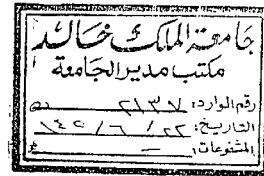 جامعة الملك خالد
مكتب مدير الجامعة
رقم الوارد: ٢١٣٧
التاريخ: ٢٢ / ٦ / ١٤٢
المشفوعات: –